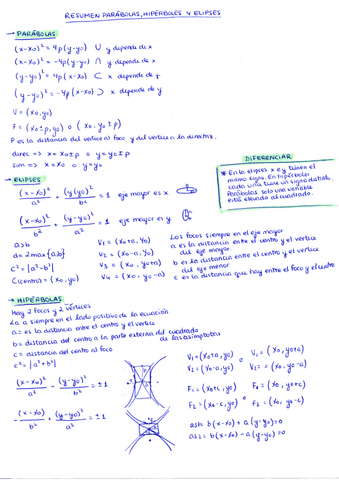 RESUMEN PARÁBOLAS, HIPÉRBOLES Y ELIPSES
→ PARÁBOLAS
(x-x₀)² = 4p(y-y₀) ∪ y depende de x
(x-x₀)² = -4p(y-y₀) ∩ y depende de x
(y-y₀)² = 4p(x-x₀) ⊂ x depende de y
(y-y₀)² = -4p(x-x₀) ⊃ x depende de y
V = (x₀, y₀)
F = (x₀±p, y₀) o (x₀, y₀±p)
P es la distancia del vertice al foco y del vertice a la directriz.
direc => x = x₀±p o y = y₀±p
sim => x = x₀ o y = y₀
DIFERENCIAR
* En la elipses x e y tienen el
mismo signo. En hipérbolas
cada una tiene un signo distinto.
Parábolas solo una variable
está elevado al cuadrado.
→ ELIPSES
(x-x₀)²/a² + (y-y₀)²/b² = 1 eje mayor es x
(x-x₀)²/b² + (y-y₀)²/a² = 1 eje mayor es y
a>b
d = 2max{a,b}
c² = |a²-b²|
C(centro) = (x₀, y₀)
V₁ = (x₀+a, y₀)
V₂ = (x₀-a, y₀)
V₃ = (x₀, y₀+a)
V₄ = (x₀, y₀-a)
Los focos siempre en el eje mayor
a es la distancia entre el centro y el vertice
del eje mayor
b es la distancia entre el centro y el vertice
del eje menor
c es la distancia que hay entre el foco y el centro
→ HIPÉRBOLAS
Hay 2 focos y 2 vértices
La a siempre en el lado positivo de la ecuación
a = es la distancia entre el centro y el vertice
b = distancia del centro a la parte externa del cuadrado
de las asimptotas
c = distancia del centro al foco
c² = |a²+b²|
(x-x₀)²/a² - (y-y₀)²/b² = ±1
-(x-x₀)/b² + (y-y₀)²/a² = ±1
V₁ = (x₀+a, y₀) o V₁ = (x₀, y₀+a)
V₂ = (x₀-a, y₀) V₂ = (x₀, y₀-a)
F₁ = (x₀+c, y₀) o F₁ = (x₀, y₀+c)
F₂ = (x₀-c, y₀) F₂ = (x₀, y₀-c)
as1 = b(x-x₀) + a(y-y₀) = 0
as2 = b(x-x₀) - a(y-y₀) = 0